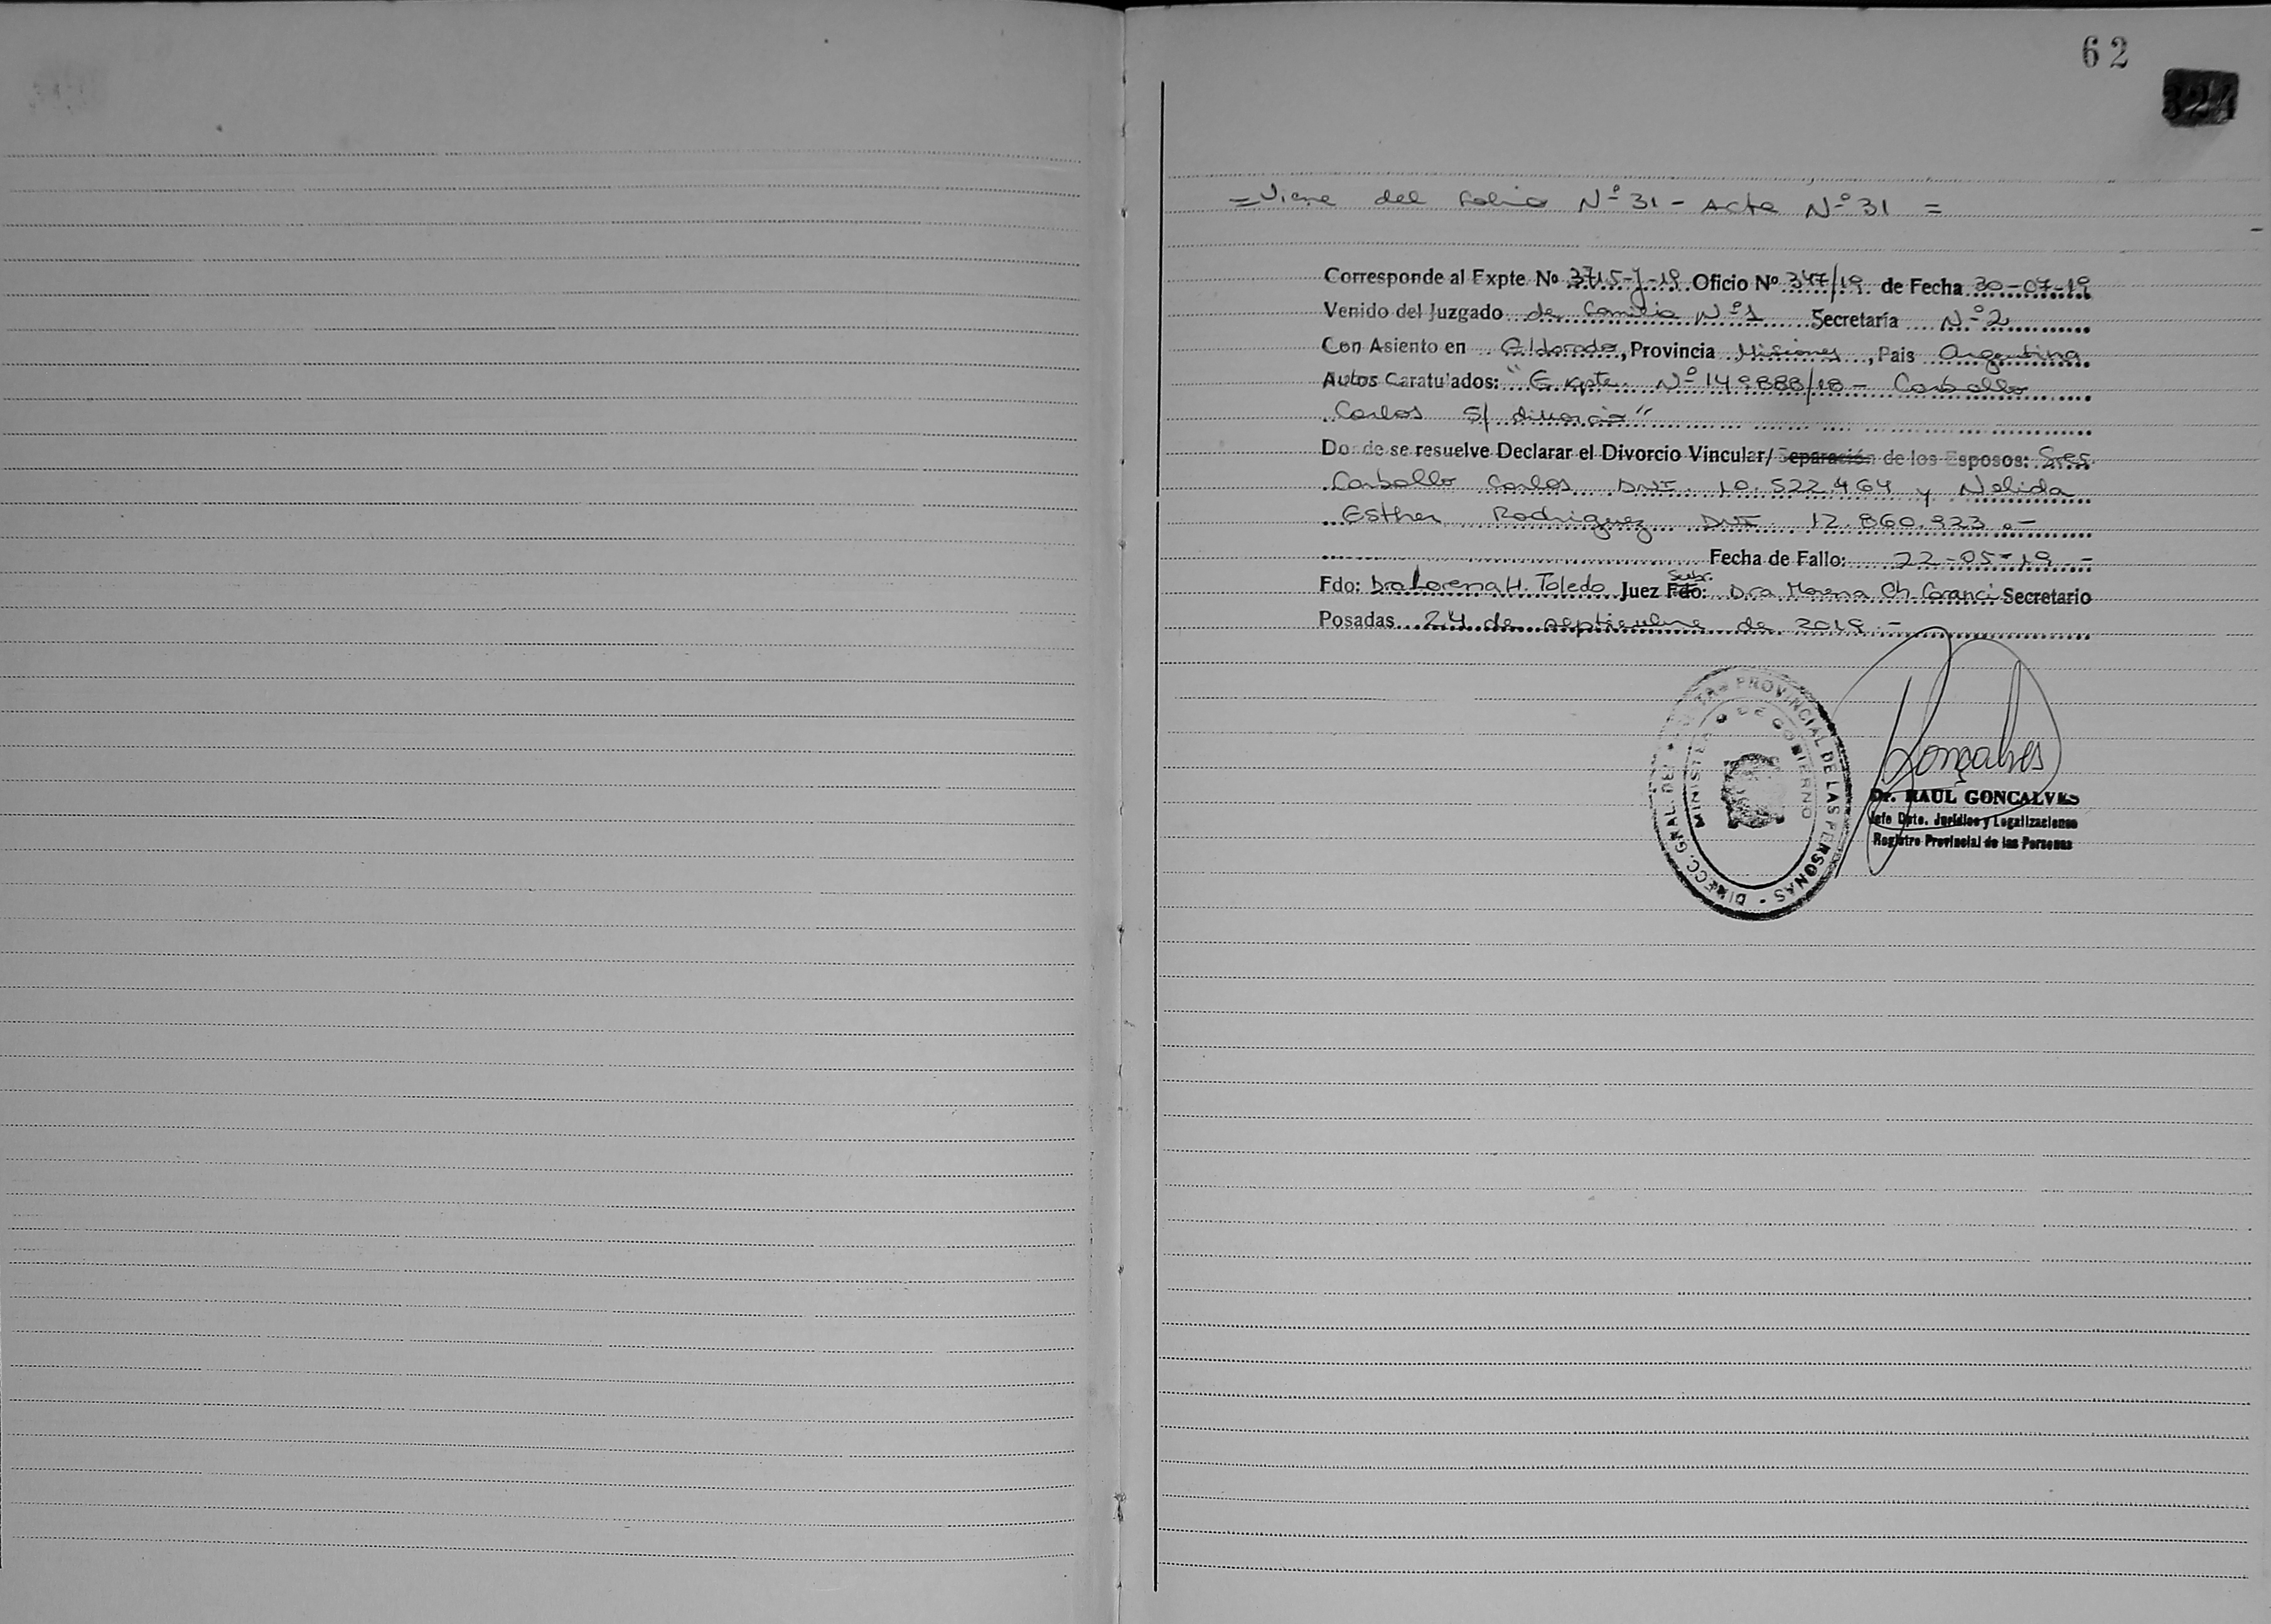 62
324
= Viene del folio Nº 31 - Acta Nº 31 =
Corresponde al Expte Nº 3715-J-19 Oficio Nº 347/19 de Fecha 30-07-19
Venido del Juzgado de Familia Nº 1 Secretaría Nº 2
Con Asiento en Eldorado, Provincia Misiones, Pais Argentina
Autos Caratulados: "Expte. Nº 149888/18 - Carballo
Carlos S/ divorcio"
Donde se resuelve Declarar el Divorcio Vincular/ Separación de los Esposos: Sres.
Carballo Carlos DNI. 10.522.464 y Nelida
Esther Rodriguez DNI. 12.860.923.-
Fecha de Fallo: 22-05-19.-
Fdo: Dra Lorena H. Toledo Juez Subr. Fdo: Dra Morena Ch Secretario
Posadas 24 de septiembre de 2019.-
DIRECC. GRAL. DEL REGISTRO PROVINCIAL DE LAS PERSONAS
MINISTERIO DE GOBIERNO
Gonçalves
Dr. RAUL GONCALVES
Jefe Dpto. Jurídico y Legalizaciones
Registro Provincial de las Personas